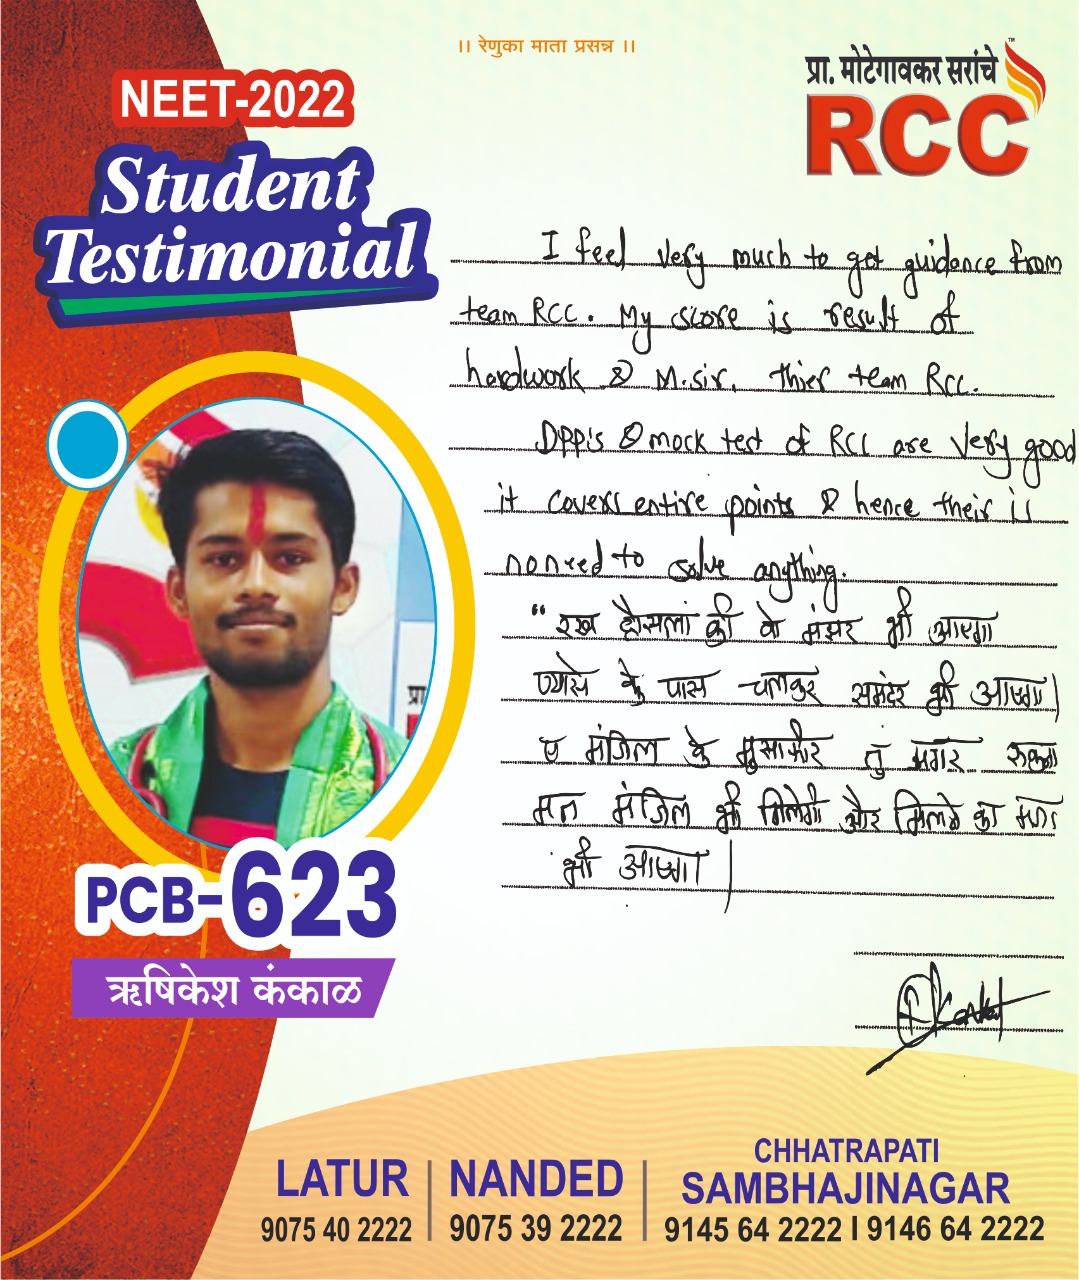 ।। रेणुका माता प्रसन्न ।।
प्रा. मोटेगावकर सरांचे
RCC
™
NEET-2022
Student
Testimonial
I feel very much to get guidance from
team RCC. My score is result of
hardwork & M.sir. thier team RCC.
DPP's & mock test of RCC are very good
it covers entire points & hence their is
no need to solve anything.
"रख हौसलां की वो मंझर भी आएगा
प्यासे के पास चलकर समंदर भी आएगा।
ए मंजिल के मुसाफीर तु मगर रुकना
मत मंजिल भी मिलेगी और मिलने का मजा
भी आएगा।
प्रा
PCB-623
ऋषिकेश कंकाळ
LATUR
9075 40 2222
NANDED
9075 39 2222
CHHATRAPATI
SAMBHAJINAGAR
9145 64 2222 I 9146 64 2222